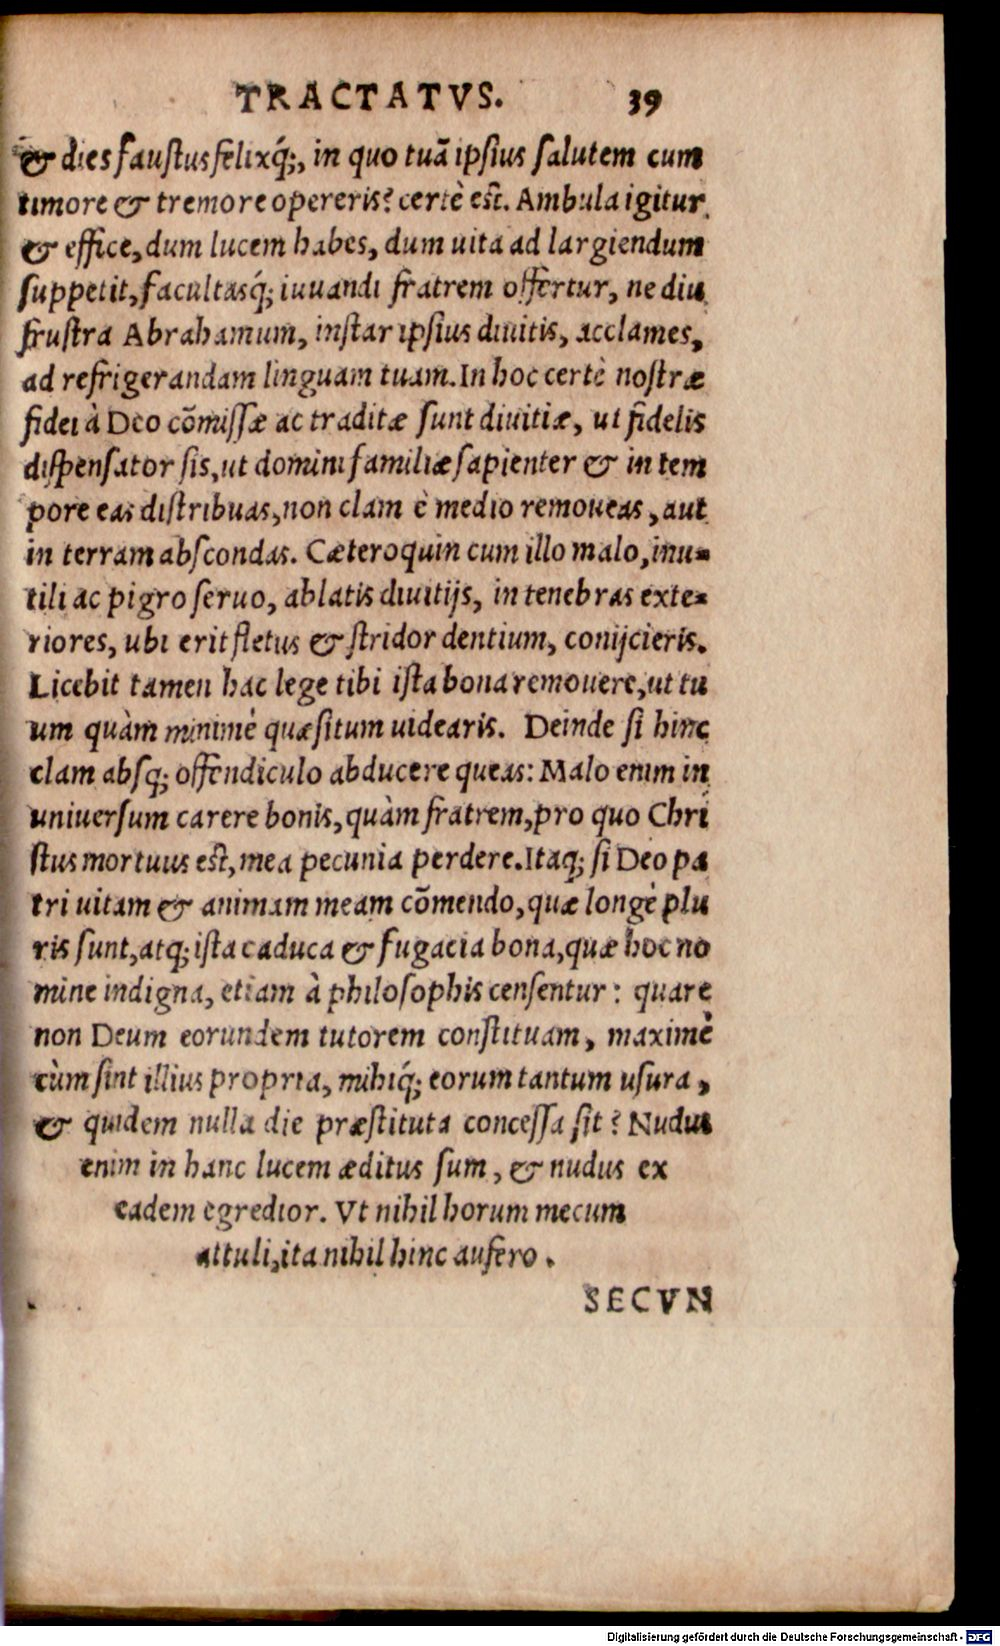 TRACTATVS. 39
& dies faustus felixq́;, in quo tuā ipsius salutem cum
timore & tremore opereris? certè est. Ambula igitur
& effice, dum lucem habes, dum uita ad largiendum
suppetit, facultasq́; iuuandi fratrem offertur, ne diu
frustra Abrahamum, instar ipsius diuitis, acclames,
ad refrigerandam linguam tuam. In hoc certè nostræ
fidei à Deo cōmissæ ac traditæ sunt diuitiæ, ut fidelis
dispensator sis, ut domini familiæ sapienter & in tem
pore eas distribuas, non clam è medio remoueas, aut
in terram abscondas. Cæteroquin cum illo malo, inu-
tili ac pigro seruo, ablatis diuitijs, in tenebras exte-
riores, ubi erit fletus & stridor dentium, conijcieris.
Licebit tamen hac lege tibi ista bona remouere, ut tu
um quàm minimè quæsitum uidearis. Deinde si hinc
clam absq; offendiculo abducere queas: Malo enim in
uniuersum carere bonis, quàm fratrem, pro quo Chri
stus mortuus est, mea pecunia perdere. Itaq; si Deo pa
tri uitam & animam meam cōmendo, quæ longè plu
ris sunt, atq; ista caduca & fugacia bona, quæ hoc no
mine indigna, etiam à philosophis censentur: quare
non Deum eorundem tutorem constituam, maximè
cùm sint illius propria, mihiq́; eorum tantum usura,
& quidem nulla die præstituta concessa sit? Nudus
enim in hanc lucem æditus sum, & nudus ex
eadem egredior. Vt nihil horum mecum
attuli, ita nihil hinc aufero.
SECVN
Digitalisierung gefördert durch die Deutsche Forschungsgemeinschaft - DFG